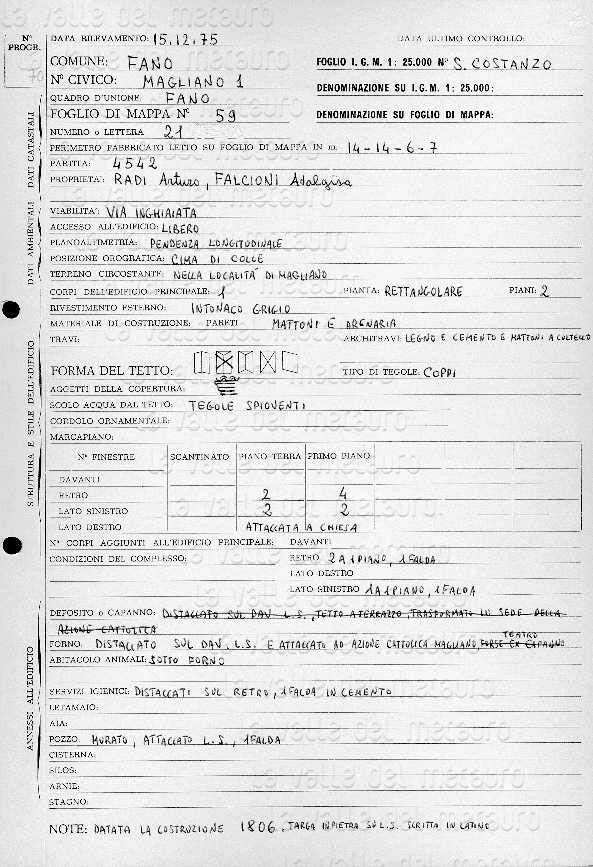 N° PROGR.
70
DATA RILEVAMENTO: 15.12.75 DATA ULTIMO CONTROLLO:
COMUNE: FANO FOGLIO I. G. M. 1: 25.000 N° S. COSTANZO
N° CIVICO: MAGLIANO 1 DENOMINAZIONE SU I. G. M. 1: 25.000:
QUADRO D'UNIONE: FANO
FOGLIO DI MAPPA N° 59 DENOMINAZIONE SU FOGLIO DI MAPPA:
NUMERO o LETTERA 21
PERIMETRO FABBRICATO LETTO SU FOGLIO DI MAPPA IN m: 14-14-6-7
PARTITA: 4542
PROPRIETA': RADI Arturo, FALCIONI Adalgisa
DATI CATASTALI
VIABILITA': VIA INGHIAIATA
ACCESSO ALL'EDIFICIO: LIBERO
PLANOALTIMETRIA: PENDENZA LONGITUDINALE
POSIZIONE OROGRAFICA: CIMA DI COLLE
TERRENO CIRCOSTANTE: NELLA LOCALITÀ DI MAGLIANO
DATI AMBIENTALI
CORPI DELL'EDIFICIO PRINCIPALE: 1 PIANTA: RETTANGOLARE PIANI: 2
RIVESTIMENTO ESTERNO: INTONACO GRIGIO
MATERIALE DI COSTRUZIONE: PARETI MATTONI E ARENARIA
TRAVI: ARCHITRAVI: LEGNO E CEMENTO E MATTONI A COLTELLO
FORMA DEL TETTO: TIPO DI TEGOLE: COPPI
AGGETTI DELLA COPERTURA:
SCOLO ACQUA DAL TETTO: TEGOLE SPIOVENTI
CORDOLO ORNAMENTALE:
MARCAPIANO:
STRUTTURA E STILE DELL'EDIFICIO
N° FINESTRE SCANTINATO PIANO TERRA PRIMO PIANO
DAVANTI
RETRO 2 4
LATO SINISTRO 2 2
LATO DESTRO ATTACCATA A CHIESA
N° CORPI AGGIUNTI ALL'EDIFICIO PRINCIPALE: DAVANTI
CONDIZIONI DEL COMPLESSO: RETRO 2 A 1 PIANO, 1 FALDA
LATO DESTRO
LATO SINISTRO 1 A 1 PIANO, 1 FALDA
DEPOSITO o CAPANNO: DISTACCATO SUL DAV. L.S., TETTO A TERRAZZO, TRASFORMATO IN SEDE DELLA
AZIONE CATTOLICA
TEATRO
FORNO: DISTACCATO SUL DAV. L.S. E ATTACCATO AD AZIONE CATTOLICA MAGLIANO, FORSE EX CAPANNO
ABITACOLO ANIMALI: SOTTO FORNO
SERVIZI IGIENICI: DISTACCATI SUL RETRO, 1 FALDA IN CEMENTO
LETAMAIO:
AIA:
POZZO: MURATO, ATTACCATO L.S., 1 FALDA
CISTERNA:
SILOS:
ARNIE:
STAGNO:
ANNESSI ALL'EDIFICIO
NOTE: DATATA LA COSTRUZIONE 1806, TARGA IN PIETRA SU L.S. SCRITTA IN LATINO
la valle del metauro